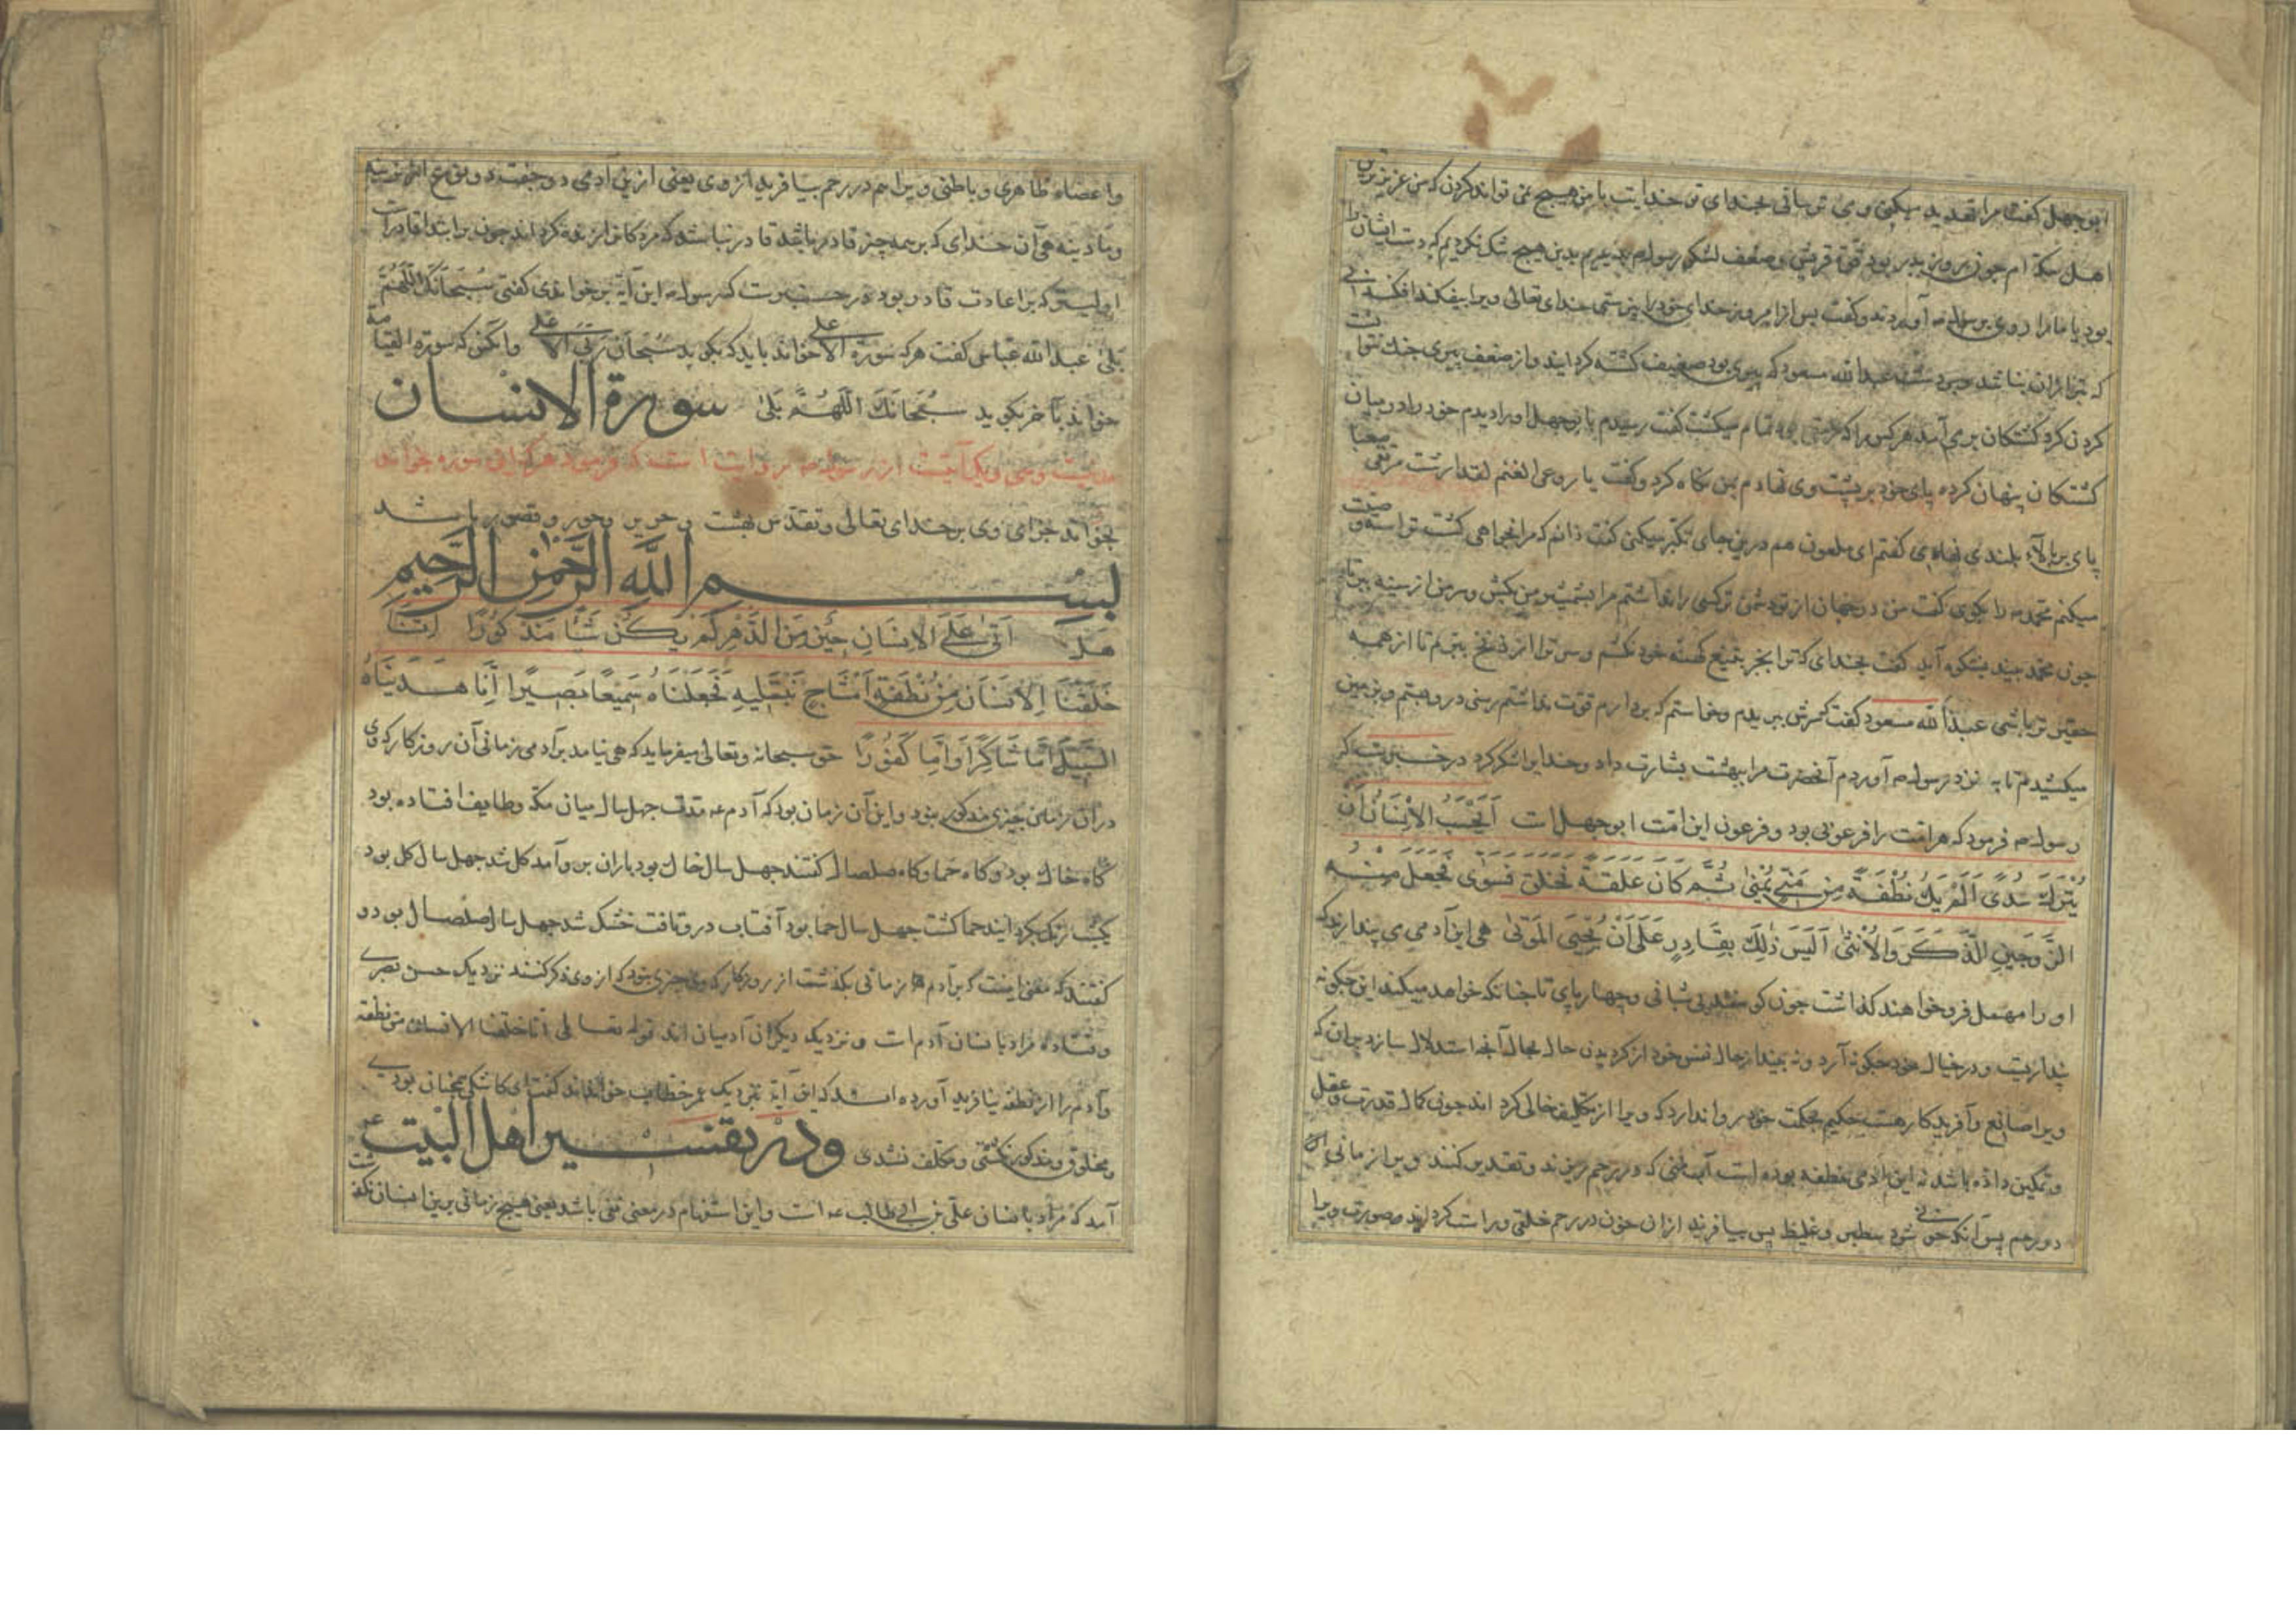 ابوجهل گفت مرا تهدید میکنی وی توسانی بخدای تو خدایت با من هیچ نمی تواند کردن که من عزیزترین
اهل مکه ام چون روز بدر بود قوة قریش وضعف لشکر رسول م بدیدیم بدین هیچ شک نکردیم که دست ایشان را
بود با ما روی برسول م آوردند وگفت پس از امروز خدای خود را نپرستی خدای تعالی ویرا بیفکند افکندنی
که بتر ازان نباشد وبردست عبدالله مسعود که پیری بود ضعیف کشته کردایند واز ضعف پیری جنک نتوانست
کردن کرد کشتکان برمی آمد هر کس را که تمام میکشت گفت رسیدم بابوجهل اورا دیدم خود را در میان
کشتکان پنهان کرده پای خود بر پشت وی نهادم بمن نکاه کرد وگفت یا رویعی الغنم لقد ارتقیت مرتقی صعبا
پای بر بالاء بلندی نهادی گفتم ای ملعون هم درین جای تکبر میکنی گفت دانم که مرا نخواهی کشت تو اما وصیت
میکنم محمد م را بکوی گفت من در جهان از تو دشمن تر کسی را نداشتم مرا بشمشیر من بکش وسر من از سینه ببر تا
چون محمد بیند بشکوه آید گفت بخدای که ترا بجز بتیغ کهنه خود نکشم وسر ترا از زنخ ببرم تا از همه
حقیرتر باشی عبدالله مسعود گفت سرش ببریدم وخواستم که بردارم قوت نداشتم رسنی در وبستم وبزمین
میکشیدم تا به نزد رسول م آوردم آنحضرت مرا ببهشت بشارت داد وخدایرا شکر کرد درخبرست که
رسول م فرمود که هر امت را فرعونی بود وفرعون این امت ابوجهل است اَيَحْسَبُ الْاِنْسَانُ اَنْ
يُتْرَكَ سُدًى اَلَمْ يَكُ نُطْفَةً مِنْ مَنِيٍّ يُمْنٰى ثُمَّ كَانَ عَلَقَةً فَخَلَقَ فَسَوّٰى فَجَعَلَ مِنْهُ
الزَّوجَيْنِ الذَّكَرَ وَالْاُنْثٰى اَلَيْسَ ذٰلِكَ بِقَادِرٍ عَلٰى اَنْ يُحْيِيَ الْمَوْتٰى هی این آدمی می پندارد که
او را مهمل فرو خواهند کذاشت چون کوسفند بی شبانی وچهارپای تا چنانکه خواهد میکند این چکونه
پنداریست ودر خیال خود چکونه آرد ونه بیند از حال نفس خود از کردیدن حال بحال آنجا استدلال سازد بران که
ویرا صانع وآفریدکار هست حکیم بحکمت خود روا ندارد که ویرا از تکلیف خالی کرداند چون کمال قدرت وعقل
وتمکین داده باشد نه این آدمی نطفه بوده است آب منی که در رحم ریزند وتقدیر کنند ویرا زمانی
در رحم پس آنکه خونی شود سطبر وغلیظ پس بیافرید ازان خون در رحم خلقی وراست کردایند وصورت ویرا
واعضاء ظاهری وباطنی ویرا هم در رحم بیافرید از وی یعنی ازین آدمی دو جفت دو نوع نرینه
ومادینه هی آن خدای که برهمه چیز قادر باشد قادر نباشد که مردکانرا زنده کرداند چون برابتدا قادرست
اولیتر که براعادت قادر بود درخبرست که رسول م این آیة برخواندی گفتی سُبْحَانَكَ اللّٰهُمَّ
بَلٰى عبدالله عباس گفت هرکه سورة الاعلی خواند باید که بکوید سبحان ربی الاعلی وانکس که سورة القیامة
خواند بآخر بکوید سُبْحَانَكَ اللّٰهُمَّ بَلٰى سورة الانسان
مدنیست وسی ویک آیتست از رسول م روایت است که فرمود هرکه این سوره بخواند
بخواند جزای وی برخدای تعالی وتقدس بهشت وحریر وحور وقصور باشد
بسم الله الرحمن الرحیم
هَلْ اَتٰى عَلَى الْاِنْسَانِ حِينٌ مِنَ الدَّهْرِ لَمْ يَكُنْ شَيْئًا مَذْكُورًا اِنَّا
خَلَقْنَا الْاِنْسَانَ مِنْ نُطْفَةٍ اَمْشَاجٍ نَبْتَلِيهِ فَجَعَلْنَاهُ سَمِيعًا بَصِيرًا اِنَّا هَدَيْنَاهُ
السَّبِيلَ اِمَّا شَاكِرًا وَاِمَّا كَفُورًا حق سبحانه وتعالی میفرماید که هی نیامد برآدمی زمانی آن روزکار که وی
دران زمان چیزی مذکور نبود واین آن زمان بود که آدم عه مدت چهل سال میان مکه وطایف افتاده بود
گاه خاک بود وگاه حما وگاه صلصال گفتند چهل سال خاک بود باران بر وآمد گل شد چهل سال گل بود
بکشت رنک بکردایند حما کشت چهل سال حما بود آفتاب درو تافت خشک شد چهل سال صلصال بود و
گفتند که معنی اینست که برآدم زمانی بکذشت از روزکار که وی چیزی نبود که از وی ذکر کنند نزدیک حسن بصری
وقتاده مراد بانسان آدم است ونزدیک دیکران آدمیان اند قوله تعالی انا خلقنا الانسان من نطفة
وآدم را از نطفه نیافرید آورده اند که این آیة نزدیک عمر خطاب خواندند گفت ای کاشکی همچنان بودی
ومخلوق ومذکور نکشتی ومکلف نشدی ودر تفسیر اهل البیت عه
آمد که مراد بانسان علی بن ابی طالب عه است واین استفهام در معنی نفی باشد یعنی هیچ زمانی برین انسان نکذشت